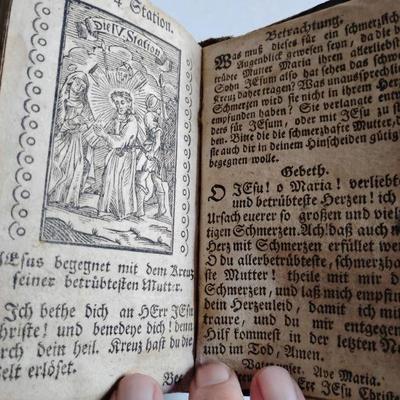 4 Station.
Die IV. Station
JEsus begegnet mit dem Kreuz
seiner betrübtesten Mutter.
Ich bethe dich an HErr JEsu
Christe! und benedeye dich! denn
durch dein heil. Kreuz hast du die
Welt erlöset.
Be
Betrachtung.
Was muß dieses für ein schmerzlich
Augenblick gewesen seyn, da die
trübte Mutter Maria ihren allerliebst
Sohn JEsum also hat sehen das schw
Kreuz daher tragen? Was unaussprechli
Schmerzen wird sie nicht in ihrem Herz
empfunden haben? Sie verlangte ent
ders für JEsum, oder mit JEsu zu st
ben. Bitte die die schmerzhafte Mutter,
sie auch dir in deinem Hinscheiden gütig
begegnen wolle.
Gebeth.
O JEsu! o Maria! verliebte
und betrübteste Herzen! ich
Ursach euerer so großen und viel
tigen Schmerzen. Ach! daß auch
Herz mit Schmerzen erfüllet wer
O du allerbetrübteste, schmerzhaf
ste Mutter! theile mit mir d
Schmerzen, und laß mich empfin
dein Herzenleid, damit ich mi
traure, und du mir entgegen
Hilf kommest in der letzten No
und im Tod, Amen.
Vater unser. Ave Maria.
Err JEsu Christe